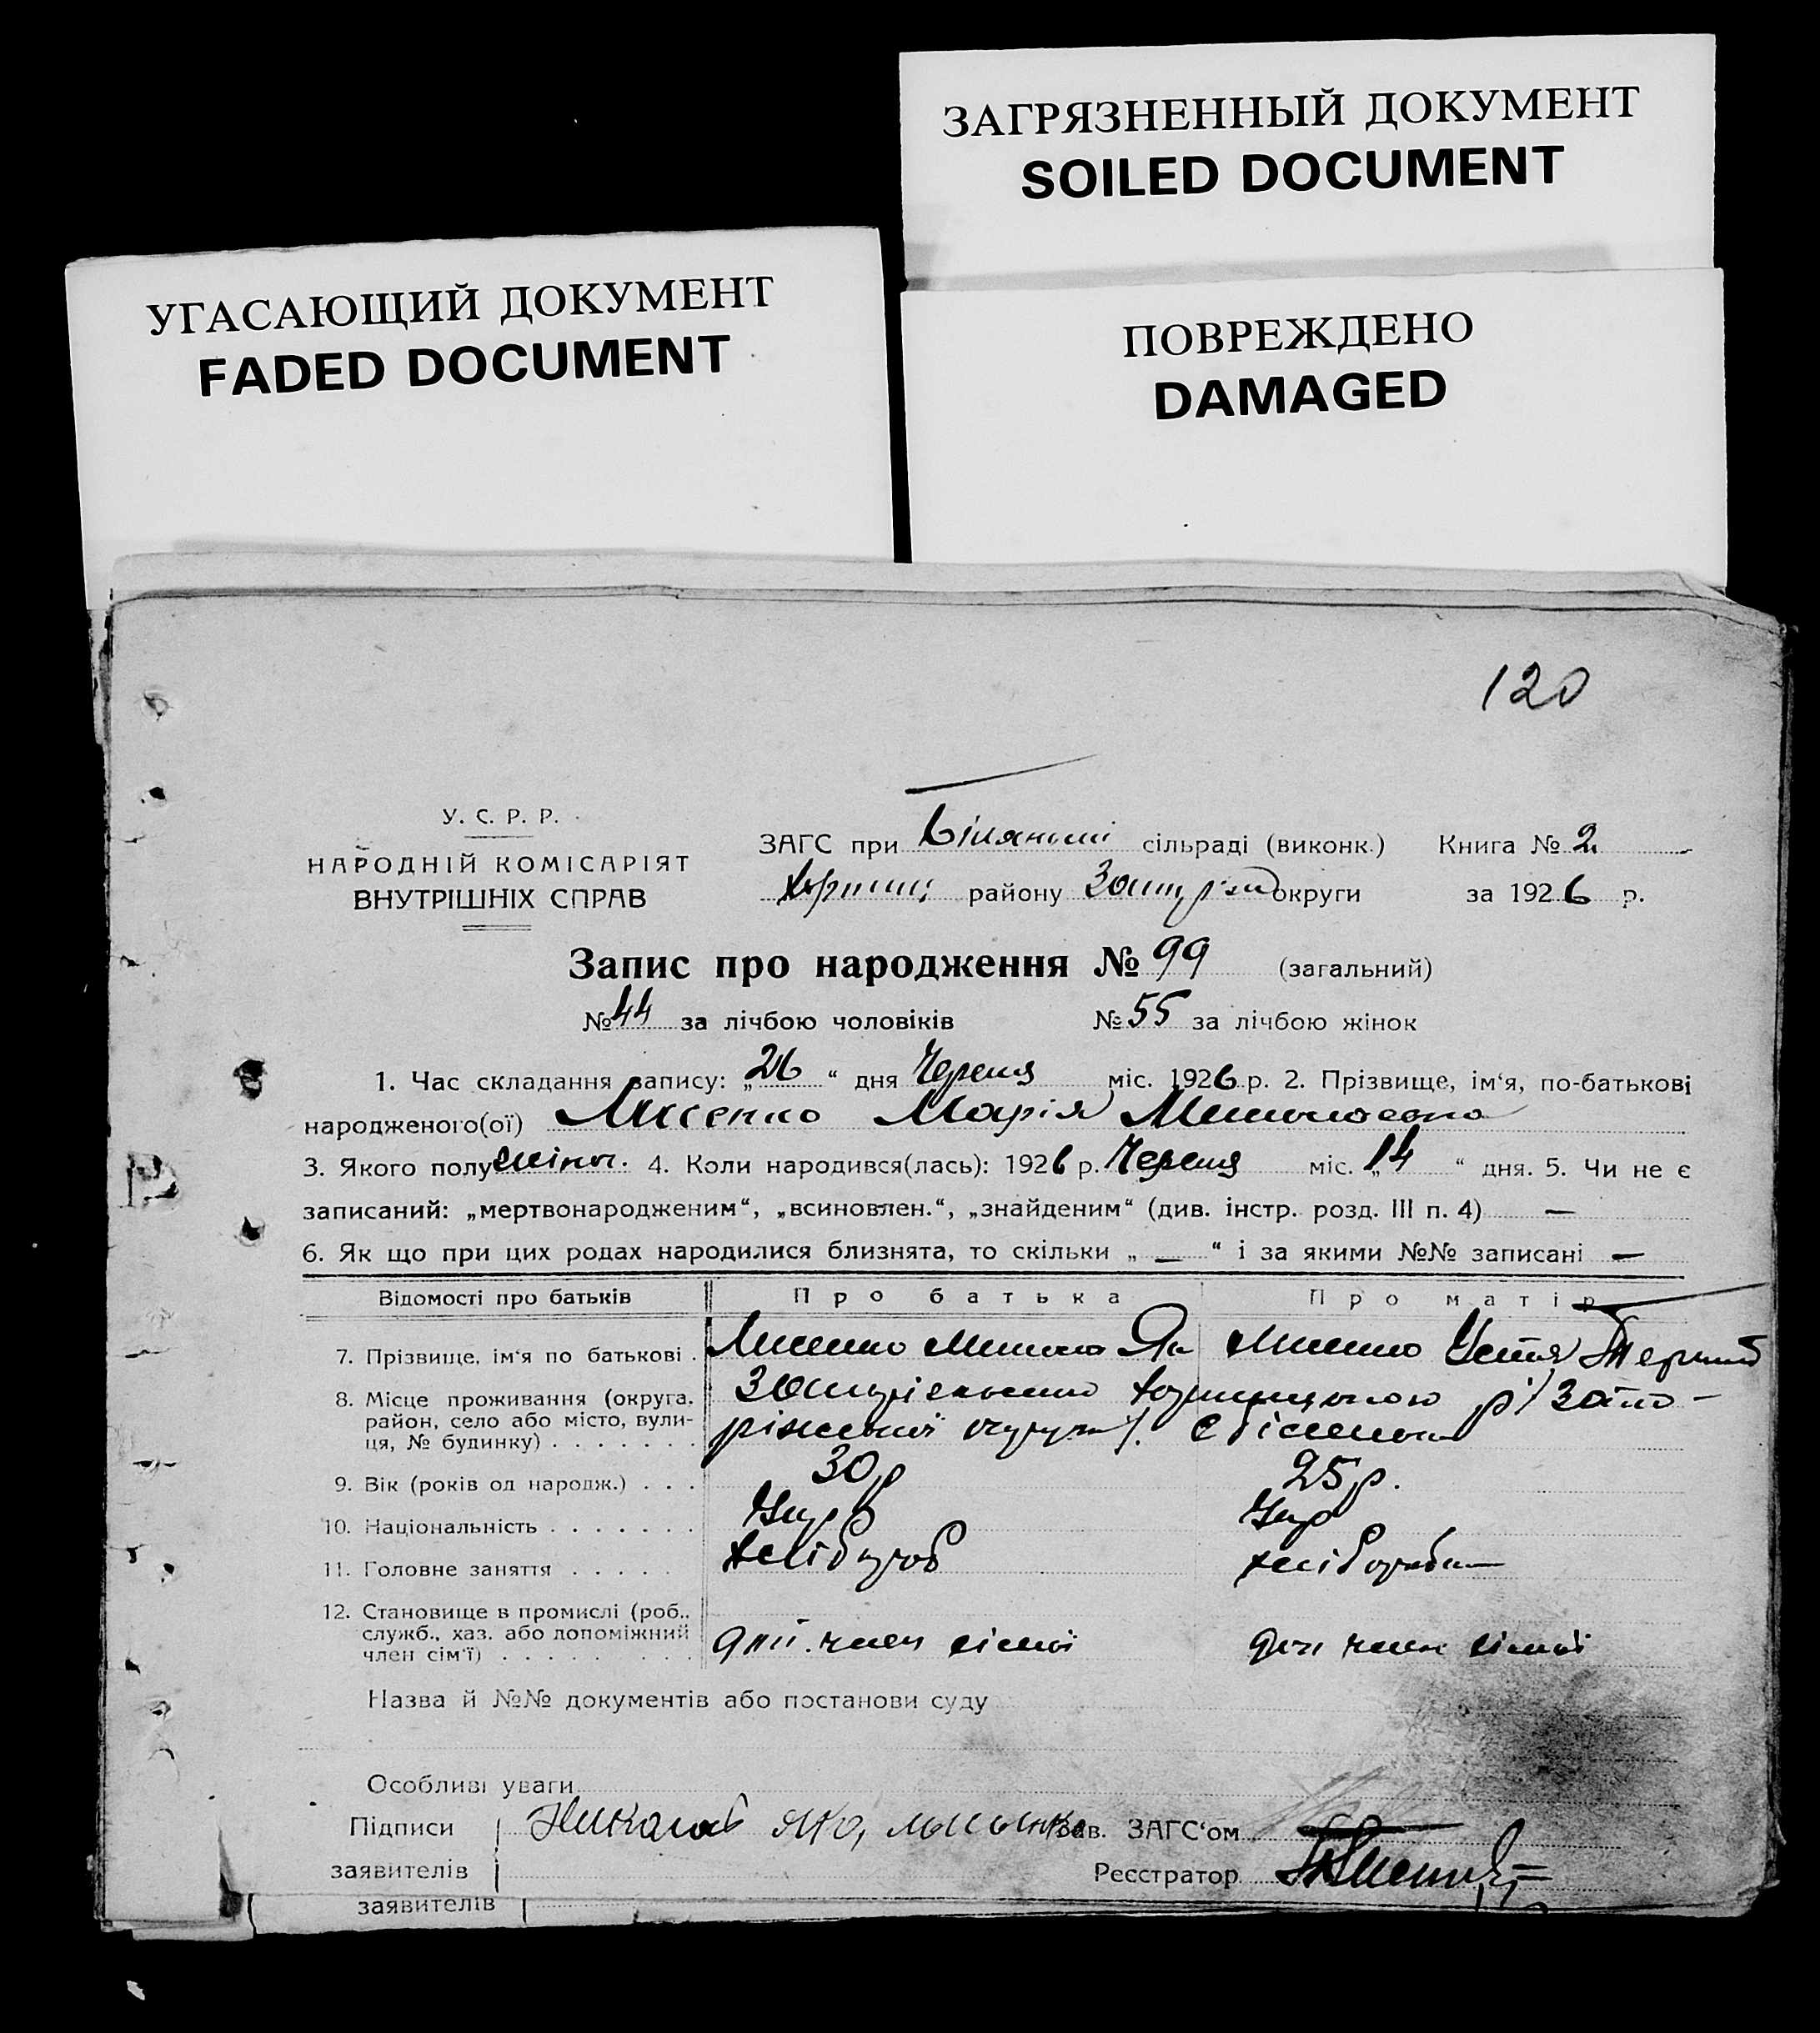 ЗАГРЯЗНЕННЫЙ ДОКУМЕНТ
SOILED DOCUMENT
УГАСАЮЩИЙ ДОКУМЕНТ
FADED DOCUMENT
ПОВРЕЖДЕНО
DAMAGED
120
У. С. Р. Р.
НАРОДНІЙ КОМІСАРІЯТ
ВНУТРІШНІХ СПРАВ
ЗАГС при сільраді (виконк.) Книга № 2
району округи за 1926 р.
Запис про народження № 99 (загальний)
№ 44 за лічбою чоловіків № 55 за лічбою жінок
1. Час складання запису: „26“ дня Червня міс. 1926 р. 2. Прізвище, ім‘я, по-батькові
народженого(ої) Лисенко Марія Миколаевна
3. Якого полу жіноч. 4. Коли народився(лась): 1926 р. Червня міс. „14“ дня. 5. Чи не є
записаний: „мертвонародженим“, „всиновлен.“, „знайденим“ (див. інстр. розд. III п. 4) —
6. Як що при цих родах народилися близнята, то скільки „ — “ і за якими №№ записані —
Відомості про батьків Про батька Про матір
7. Прізвище, ім‘я по батькові . Лисенко Микола Як Лисенко Устя
8. Місце проживання (округа,
район, село або місто, вули-
ця, № будинку) . . . . . . .
р / Запо-
ріжської округи
9. Вік (років од народж.) . . . 30 р 25 р.
10. Національність . . . . . . . Укр Укр
11. Головне заняття . . . . . Хлібороб хліборобка
12. Становище в промислі (роб.,
служб., хаз. або допоміжний
член сім‘ї) . . . . . . . . член сімьї член сімьї
Назва й №№ документів або постанови суду
Особливі уваги
Підписи Зав. ЗАГС‘ом
заявителів Реєстратор
заявителів